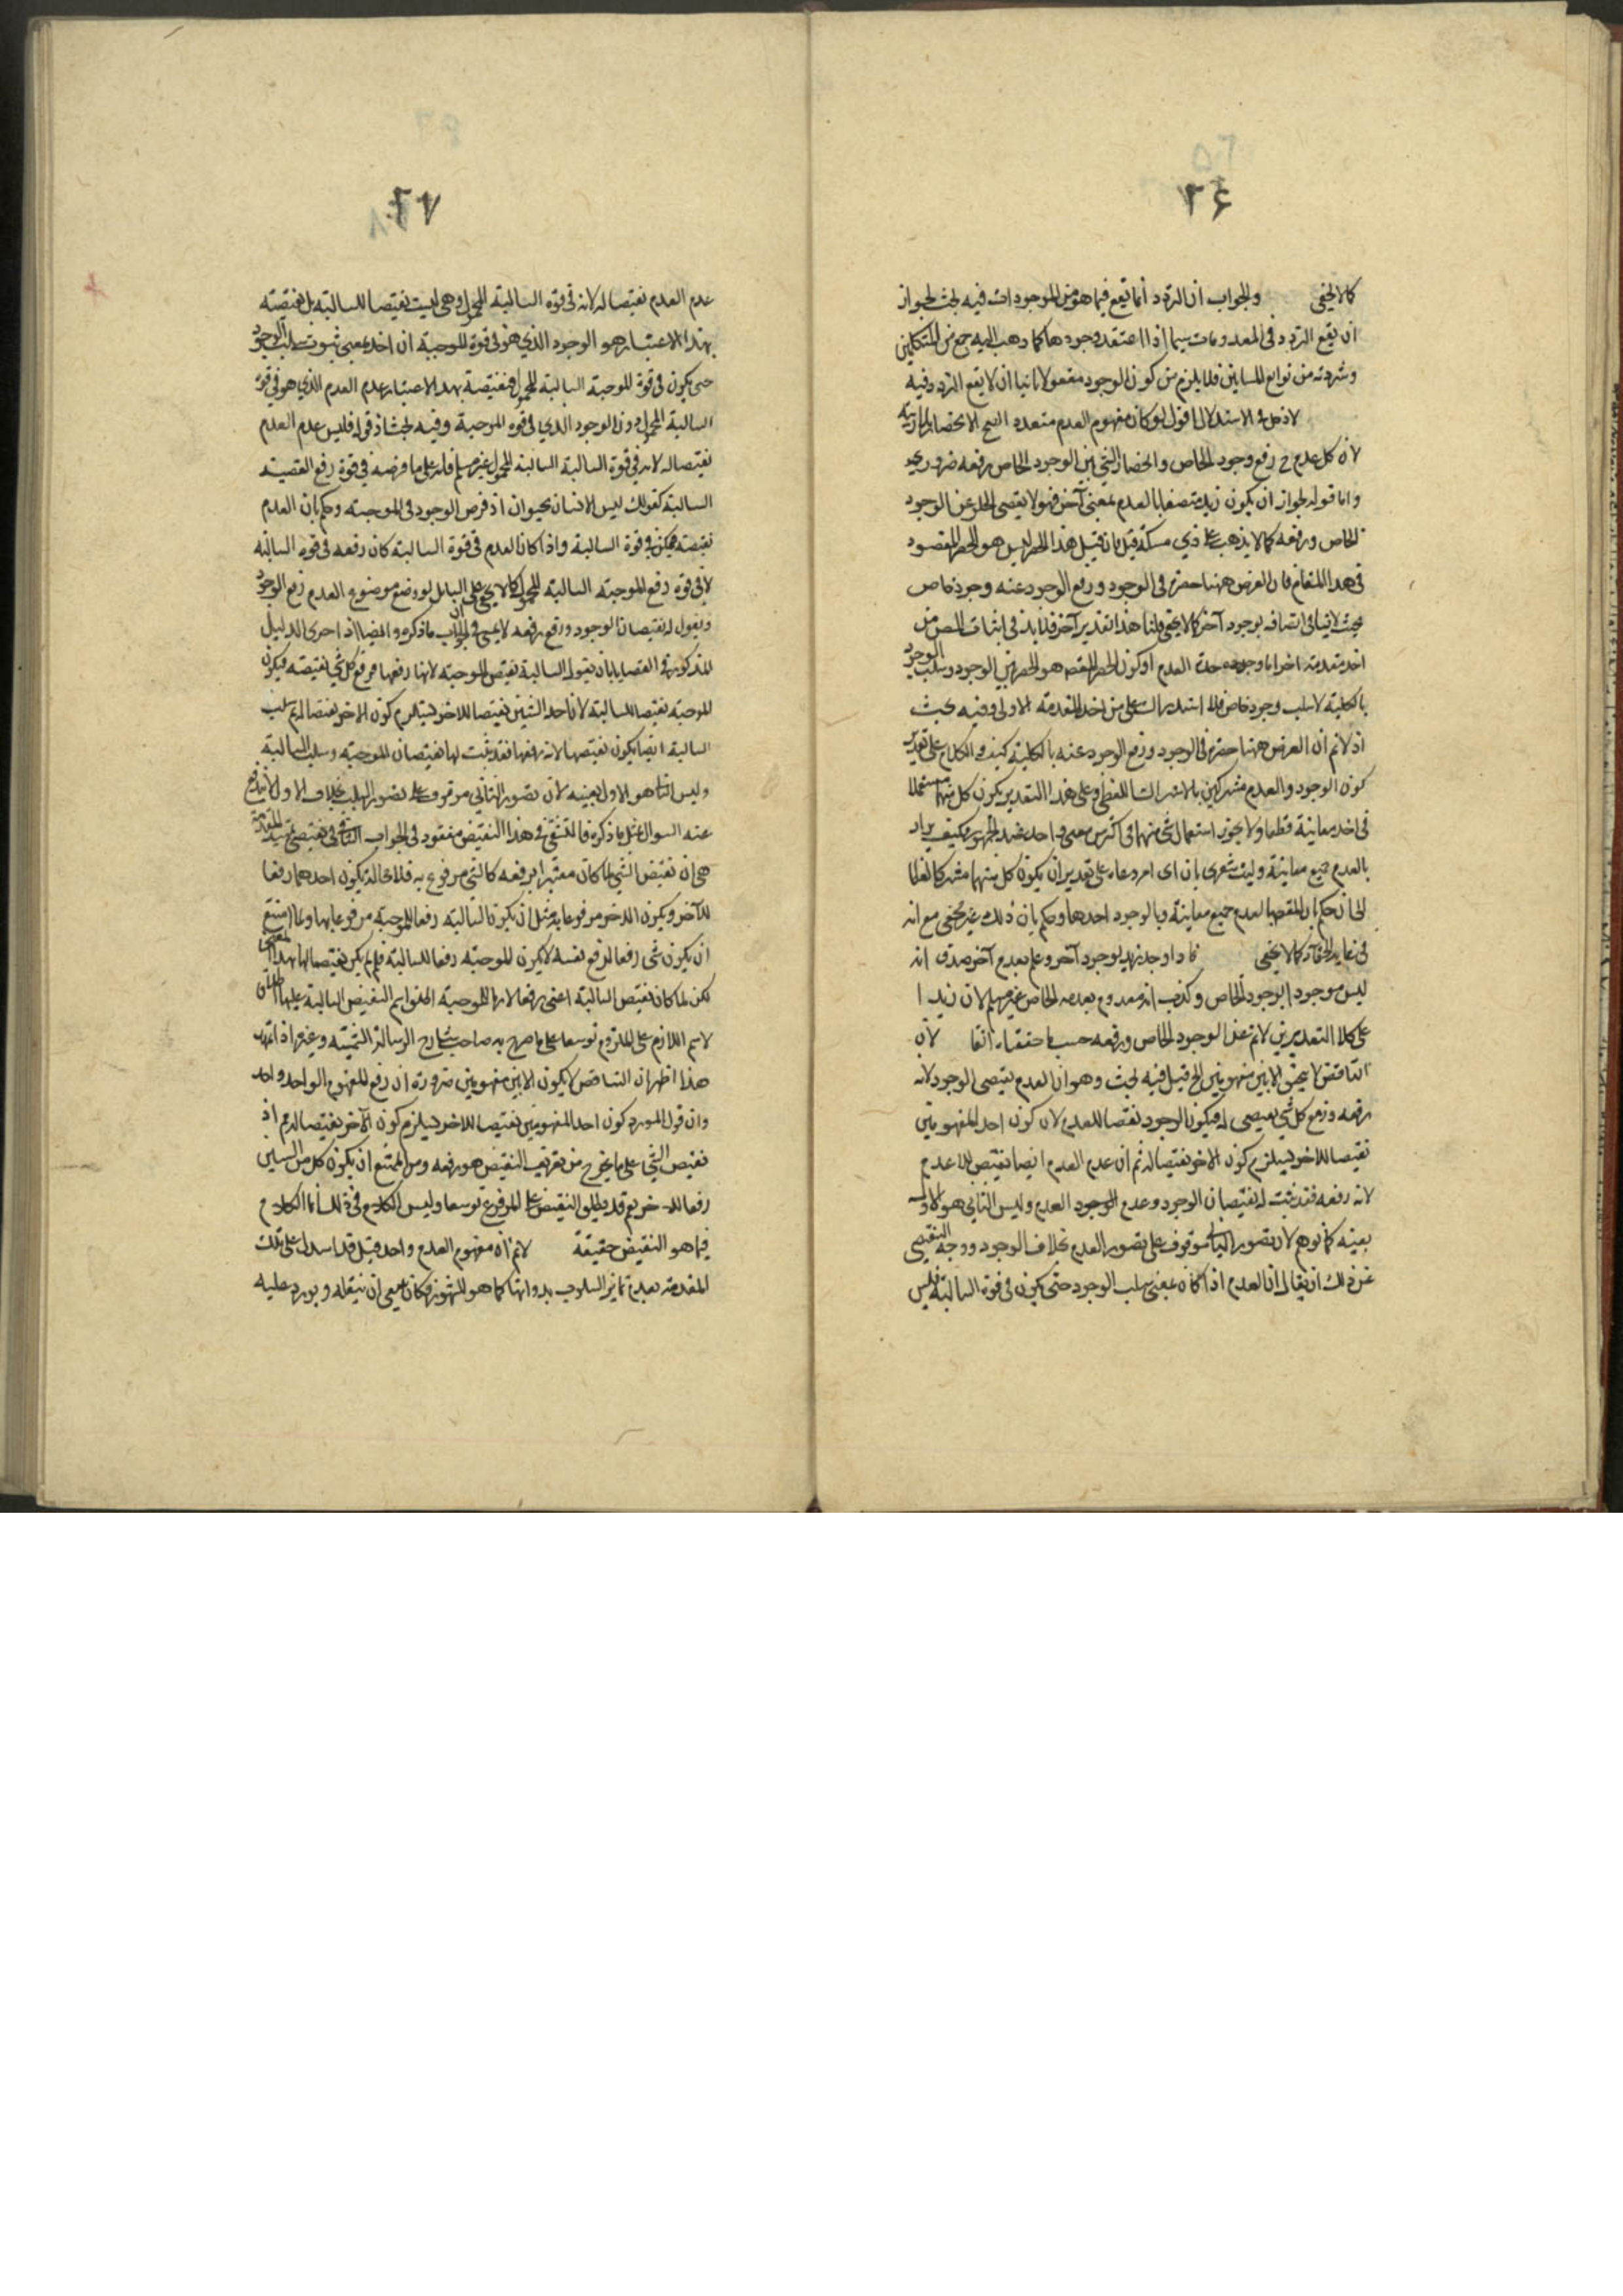 ٢٤
كما لا يخفى والجواب ان التردد انما يقع فيما هو من الموجودات فيه بحث لجواز
ان يقع التردد في المعدومات سيما اذا اعتقد وجودها كما ذهب اليه جمع من المتكلمين
فلا يلزم من كون الوجود مقولا ثانيا ان لا يقع التردد فيه
اقول لو كان مفهوم العدم متعددا
لان كل عدم رفع وجود الخاص وانحصار الشيء بين الوجود الخاص ورفعه ضروري
واما قوله لجواز ان يكون زيد متصفا بالعدم بمعنى آخر فهو لا يقتضي الخلو عن الوجود
الخاص ورفعه كما لا يذهب على ذي مسكة قيل هذا الحصر ليس هو الحصر المقصود
في هذا المقام فان الغرض ههنا حصره في الوجود ورفع الوجود عنه وجود خاص
بحيث لا ينافي اتصافه بوجود آخر كما لا يخفى قلنا هذا تقدير آخر فلا بد في اثبات
اخذ مقدمة اخرى اما وحدة العدم او كون الحصر المقصود هو الحصر بين الوجود وسلب الوجود
بالكلية لا سلب وجود خاص فلا استدراك على من اخذ المقدمة الاولى وفيه بحث
اذ لا نم ان الغرض ههنا حصره في الوجود ورفع الوجود عنه بالكلية كيف والكلام على تقدير
كون الوجود والعدم مشتركين بالاشتراك اللفظي وعلى هذا التقدير يكون كل منهما مستعملا
في احد معانيه قطعا ولا يجوز استعمال شيء منهما في اكثر من معنى واحد عند الجمهور فكيف يراد
بالعدم جميع معانيه وليت شعري بان اي امر دعاه على تقدير ان يكون كل منهما مشتركا لفظيا
الى ان حكم بان المقصود بالعدم جميع معانيه وبالوجود احدها وحكم بان ذلك غير مخفي مع انه
في غاية الخفاء كما لا يخفى فاذا وجد زيد بوجود آخر وعدم بعدم آخر صدق انه
ليس موجودا بوجود الخاص وكذب انه معدوم بعدمه الخاص غير مسلم لان زيدا
على كلا التقديرين لا يخ عن الوجود الخاص ورفعه حسب ما حققناه آنفا لان
التناقض لا يتحقق الا بين مفهومين الخ قيل فيه بحث وهو ان العدم نقيض الوجود لانه
رفعه ورفع كل شيء نقيض له فيكون الوجود نقيضا للعدم لان كون احد المفهومين
نقيضا للاخر يستلزم كون الاخر نقيضا له ثم ان عدم العدم ايضا نقيض للعدم
لانه رفعه فقد ثبت له نقيضان الوجود وعدم العدم وليس الثاني هو الاول
بعينه كما توهم لان تصور الثاني موقوف على تصور العدم بخلاف الوجود ووجه التفصي
عن ذلك ان يقال ان العدم اذا كان بمعنى سلب الوجود حتى يكون في قوة السالبة فليس
٢٧
عدم العدم نقيضا له لانه في قوة السالبة المحمول وهي ليست نقيضا للسالبة بل نقيضته
بهذا الاعتبار هو الوجود الذي هو في قوة الموجبة ان اخذ بمعنى ثبوت سلب الوجود
حتى يكون في قوة الموجبة السالبة المحمول فنقيضه بهذا الاعتبار عدم العدم الذي هو في قوة
السالبة المحمول دون الوجود الذي في قوة الموجبة وفيه بحث اذ قوله فليس عدم العدم
نقيضا له لانه في قوة السالبة السالبة المحمول غير مسلم فانه على ما فرضه في قوة رفع القضية
السالبة كقولك ليس الانسان بحيوان اذ فرض الوجود في الموجبة وحكم بان العدم
نقيضه فيكون في قوة السالبة واذا كان العدم في قوة السالبة كان رفعه في قوة السالبة
لا في قوة رفع الموجبة السالبة المحمول كما لا يخفى على السائل لو وضع موضوع العدم رفع الوجود
ويقول له نقيضان الوجود ورفع رفعه لا يمشي في الجواب ما ذكره وايضا اذ اجرى الدليل
المذكور في القضايا بان يقول السالبة نقيض الموجبة لانها رفعها ورفع كل شيء نقيضه فيكون
الموجبة نقيضا للسالبة لان احد الشيئين نقيضا للاخر يستلزم كون الاخر نقيضا له ثم سلب
السالبة ايضا يكون نقيضها لانه رفعها فقد ثبت لها نقيضان الموجبة وسلب السالبة
وليس الثاني هو الاول بعينه لان تصور الثاني موقوف على تصور السلب بخلاف الاول لا يندفع
عنه السوال بمثل ما ذكره
هي ان نقيض الشيء لما كان معتبرا برفعه كالشيء مرفوع به فلا محالة يكون احدهما رفعا
للآخر ويكون الاخر مرفوعا به مثل ان يكون السالبة رفعا للموجبة مرفوعا بها ولما امتنع
ان يكون شيء رفعا لرفع نفسه لا يكون الموجبة رفعا للسالبة فلم يكن نقيضا لها بهذا المعنى
لكن لما كان نقيض السالبة اعني رفعها لازما للموجبة اطلقوا اسم النقيض السالبة عليها اطلاق
لاسم اللازم على الملزوم توسعا على ما صرح به صاحب شارح الرسالة الشمسية وغيره اذا تمهد
هذا اظهر ان التناقض لا يكون الا بين مفهومين ضرورة ان رفع المفهوم الواحد واحد
وان قول المورد كون احد المفهومين نقيضا للاخر يستلزم كون الآخر نقيضا له نم اذ
نقيض الشيء على ما يخرج من تعريف النقيض هو رفعه ومن الممتنع ان يكون كل من الشيئين
رفعا للاخر نعم قد يطلق النقيض على المرفوع توسعا وليس الكلام في ذلك انما الكلام
فيما هو النقيض حقيقة لانم ان مفهوم العدم واحد قيل قد استدل على تلك
المقدمة بعدم تمايز السلوب بذواتها كما هو المشهور فكان ينبغي ان ينقله ويورد عليه